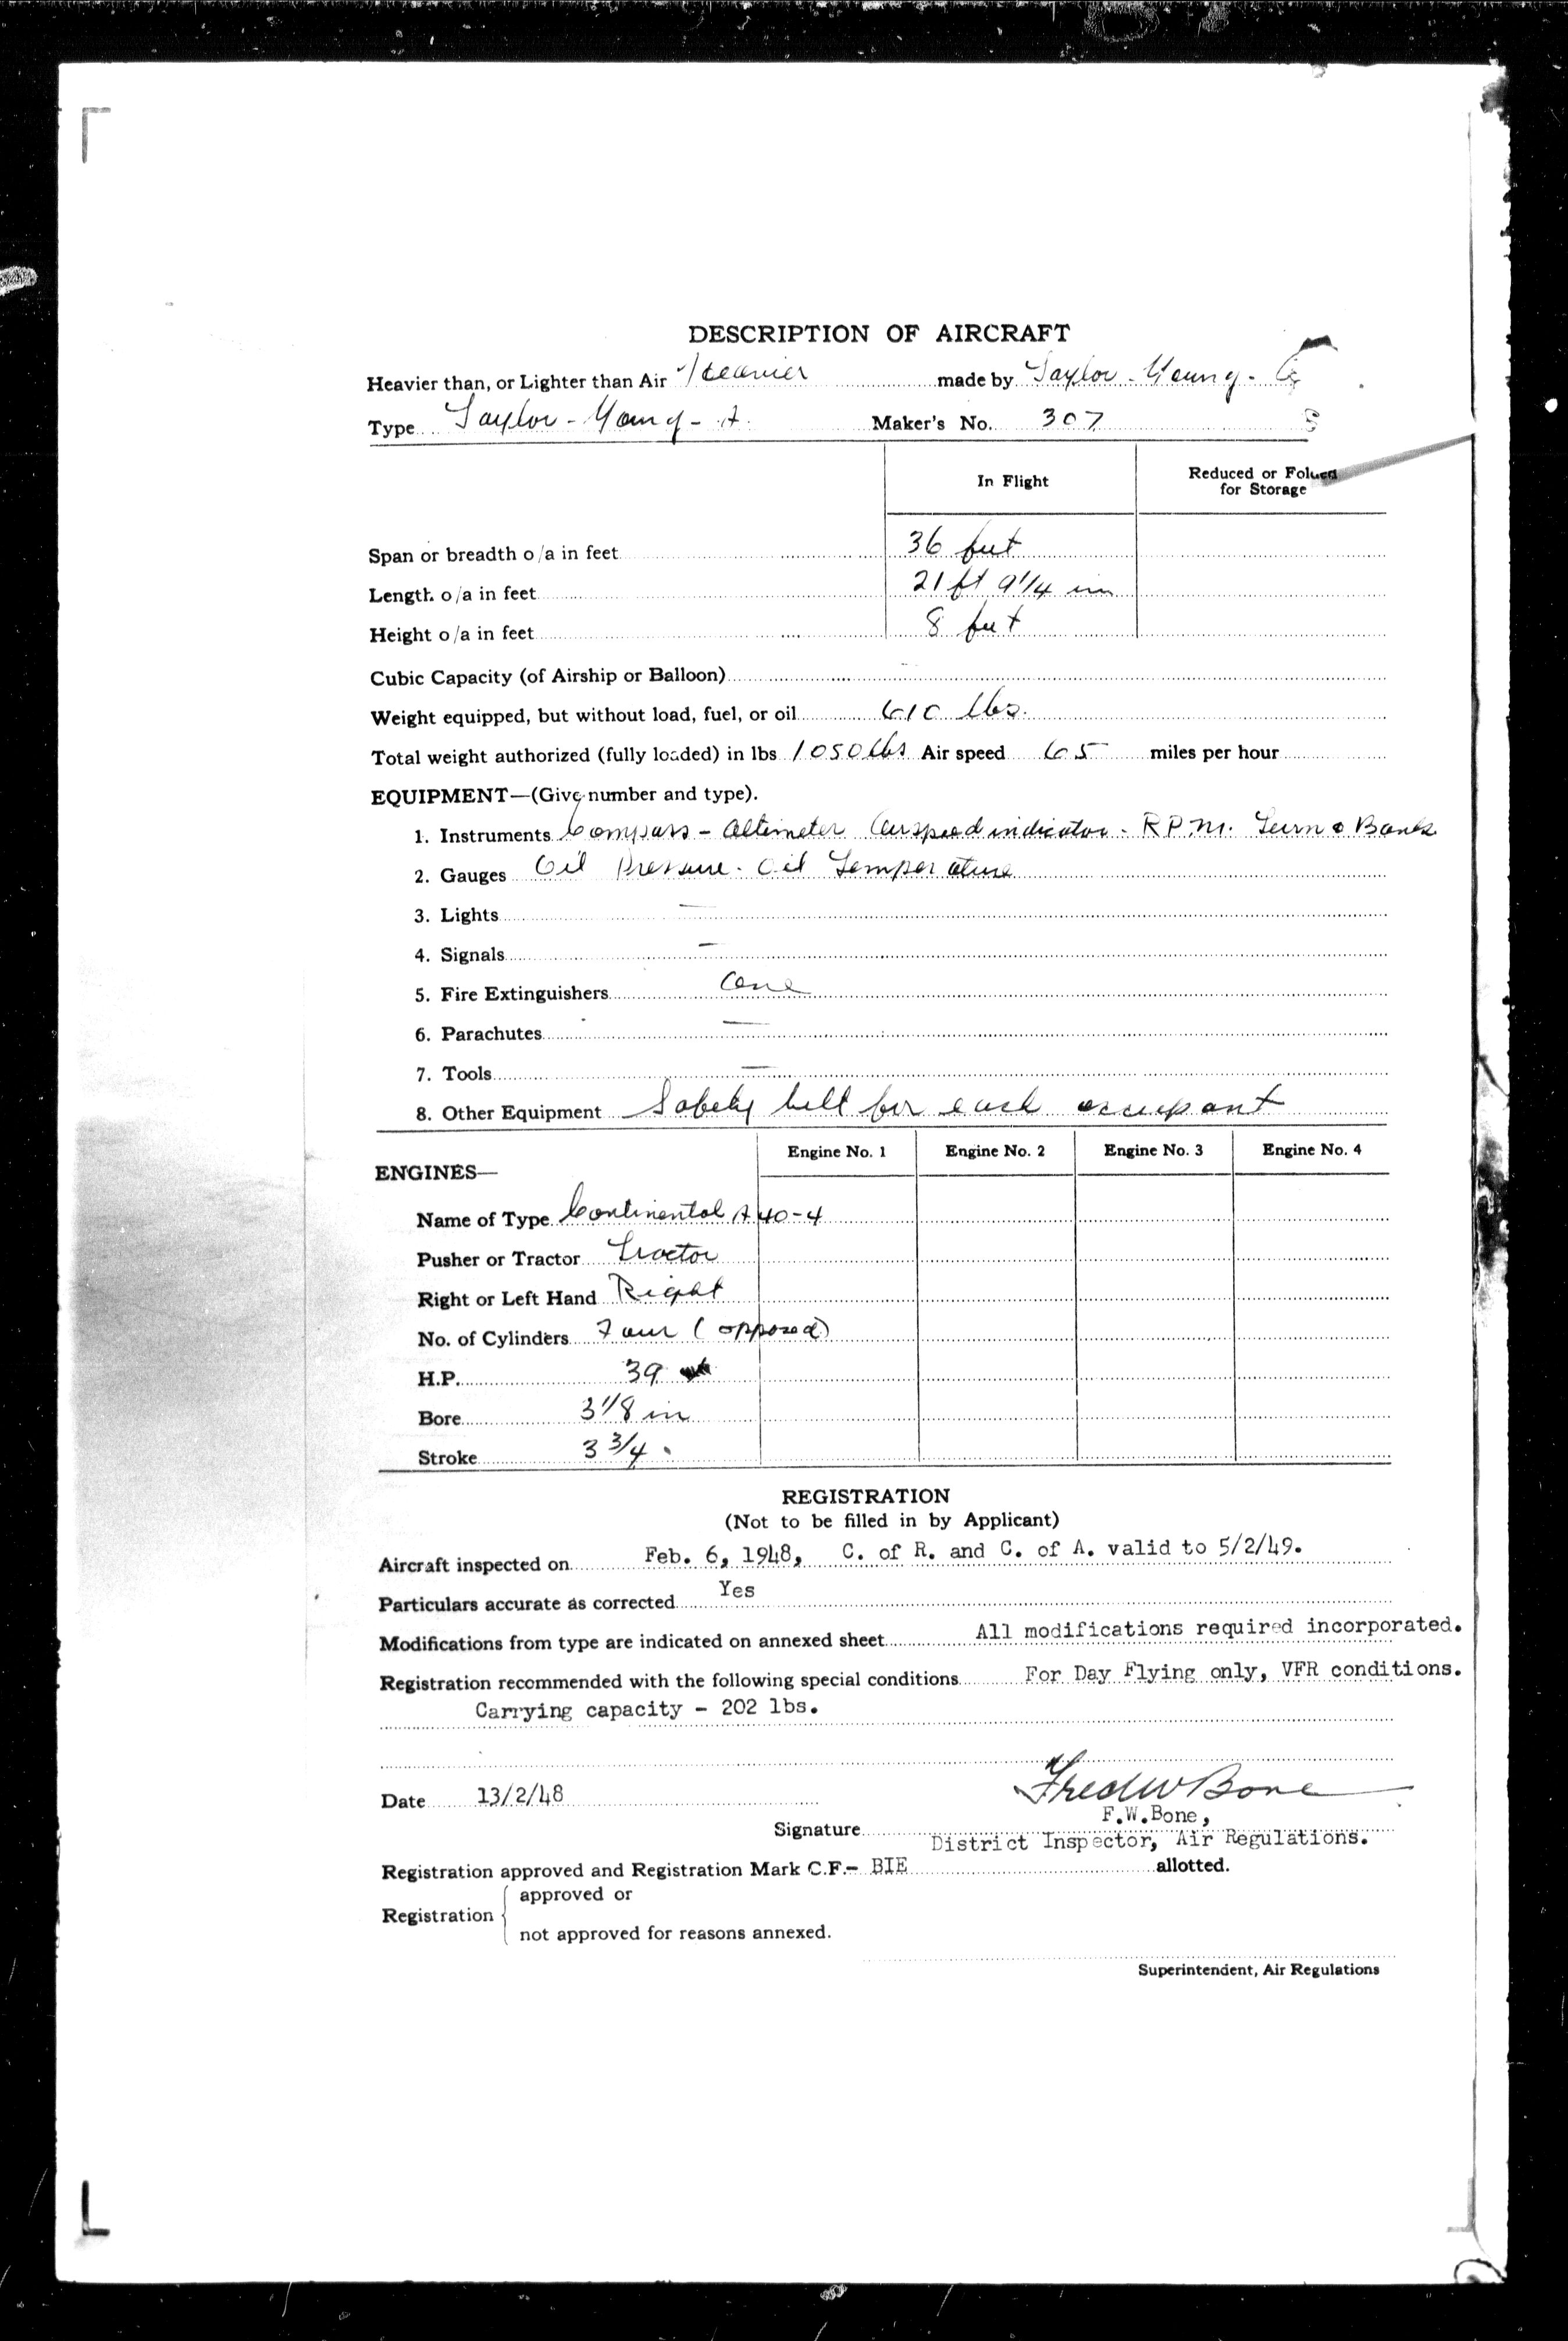 DESCRIPTION OF AIRCRAFT
Heavier than, or Lighter than Air Heavier made by Taylor-Young-
Type Taylor-Young-A Maker's No. 307
In Flight Reduced or Folded for Storage
Span or breadth o/a in feet 36 feet
Length o/a in feet 21 ft 9 1/4 in
Height o/a in feet 8 feet
Cubic Capacity (of Airship or Balloon) -
Weight equipped, but without load, fuel, or oil 610 lbs.
Total weight authorized (fully loaded) in lbs 1050 lbs Air speed 65 miles per hour
EQUIPMENT—(Give number and type).
1. Instruments Compass - Altimeter Airspeed indicator - R.P.M. Turn & Bank
2. Gauges Oil Pressure. Oil Temperature
3. Lights —
4. Signals —
5. Fire Extinguishers
6. Parachutes —
7. Tools —
8. Other Equipment Safety belt for each occupant
Engine No. 1 Engine No. 2 Engine No. 3 Engine No. 4
ENGINES—
Name of Type Continental A40-4
Pusher or Tractor Tractor
Right or Left Hand Right
No. of Cylinders Four (opposed)
H.P. 39
Bore 3 1/8 in
Stroke 3 3/4 "
REGISTRATION
(Not to be filled in by Applicant)
Aircraft inspected on Feb. 6, 1948, C. of R. and C. of A. valid to 5/2/49.
Particulars accurate as corrected Yes
Modifications from type are indicated on annexed sheet All modifications required incorporated.
Registration recommended with the following special conditions For Day Flying only, VFR conditions.
Carrying capacity - 202 lbs.
Date 13/2/48
Fred W Bone
F.W.Bone,
Signature District Inspector, Air Regulations.
Registration approved and Registration Mark C.F.- BIE allotted.
Registration { approved or
not approved for reasons annexed.
Superintendent, Air Regulations